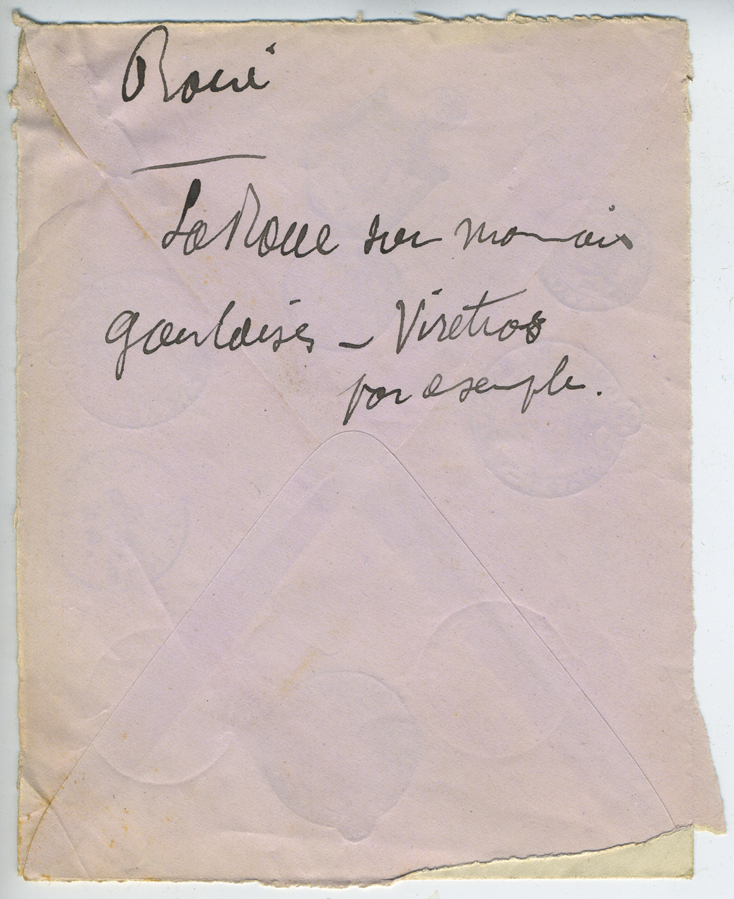 Roue
La Roue sur monnaies
gauloises – Viretios
par exemple.